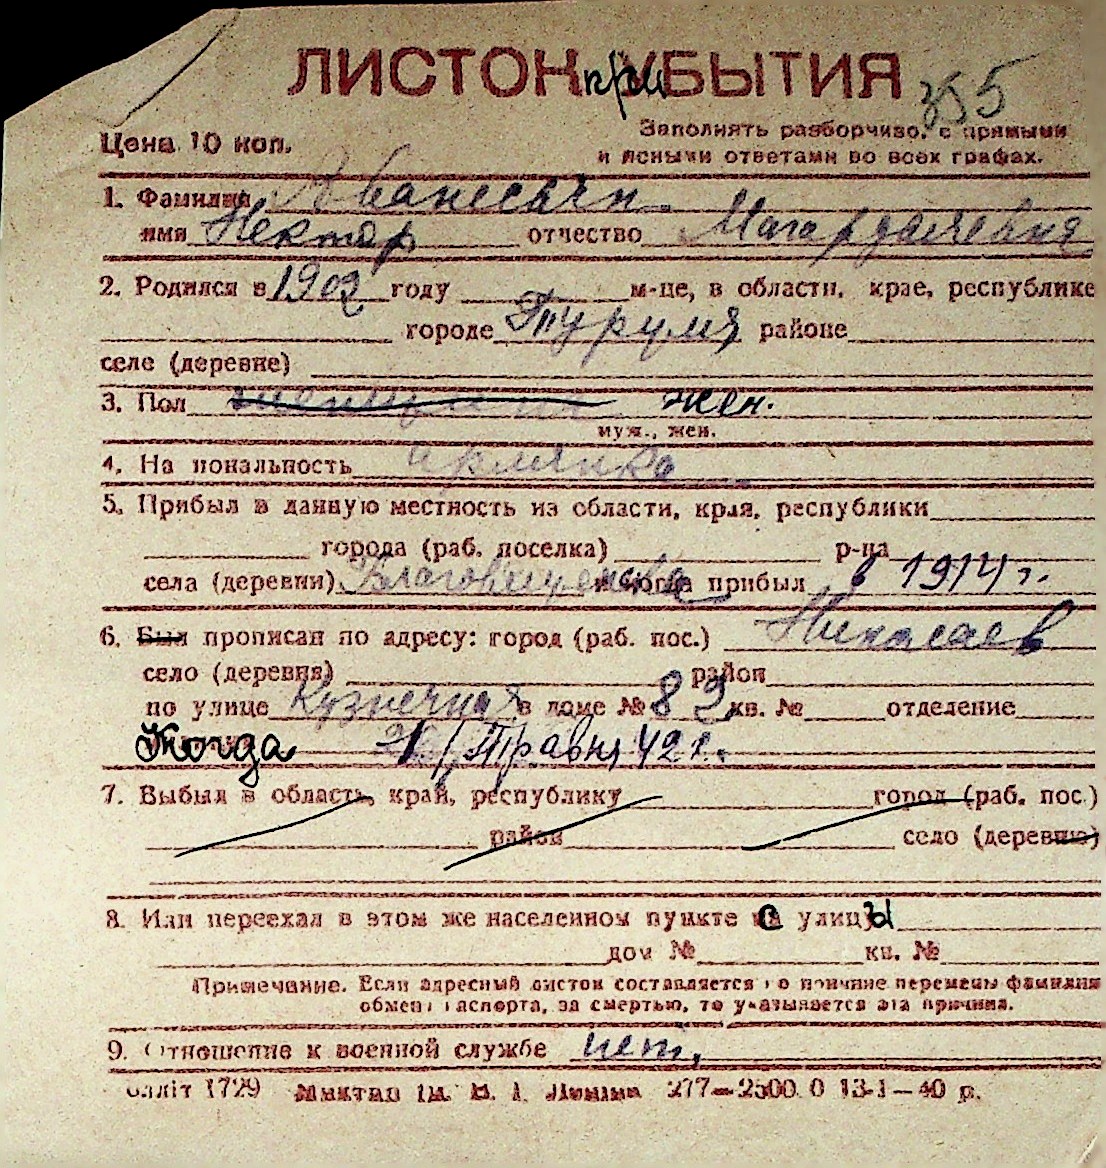 ЛИСТОК при УБЫТИЯ 355
Цена 10 коп.
Заполнять разборчиво, с прямыми
и ясными ответами во всех графах.
1. Фамилия Аванесьян
имя Нектар отчество Магардычевна
2. Родился в 1902 году м-це, в области, крае, республике
городе районе
селе (деревне)
3. Пол женщина жен.
муж., жен.
4. На иональность армянка
5. Прибыл в данную местность из области, края, республики
города (раб. поселка) р-на
села (деревни) и когда прибыл в 1914 г.
6. Был прописан по адресу: город (раб. пос.) Николаев
село (деревня) район
по улице Кузнечная в доме № 82 кв. № отделение
Когда Травня 42 г.
7. Выбыл в область, край, республику город (раб. пос.)
район село (деревню)
8. Или переехал в этом же населенном пункте с улицы
дом № кв. №
Примечание. Если адресный листок составляется по причине перемены фамилии
обмена паспорта, за смертью, то указывается эта причина.
9. Отношение к военной службе нет,
1729 277—2500.0 13-1—40 р.